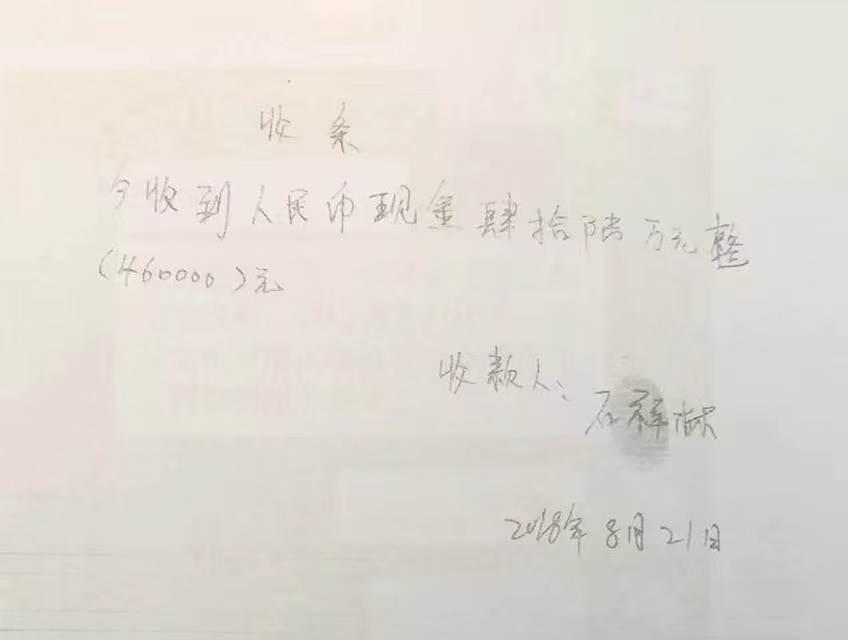 收条
今收到人民币现金肆拾陆万元整
(460000)元
收款人:
石祥林
2018年8月21日